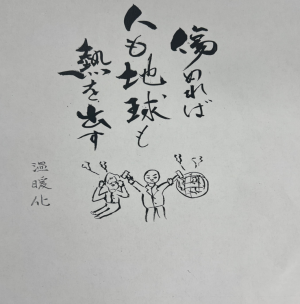 傷めれば
人も地球も
熱を出す
温暖化